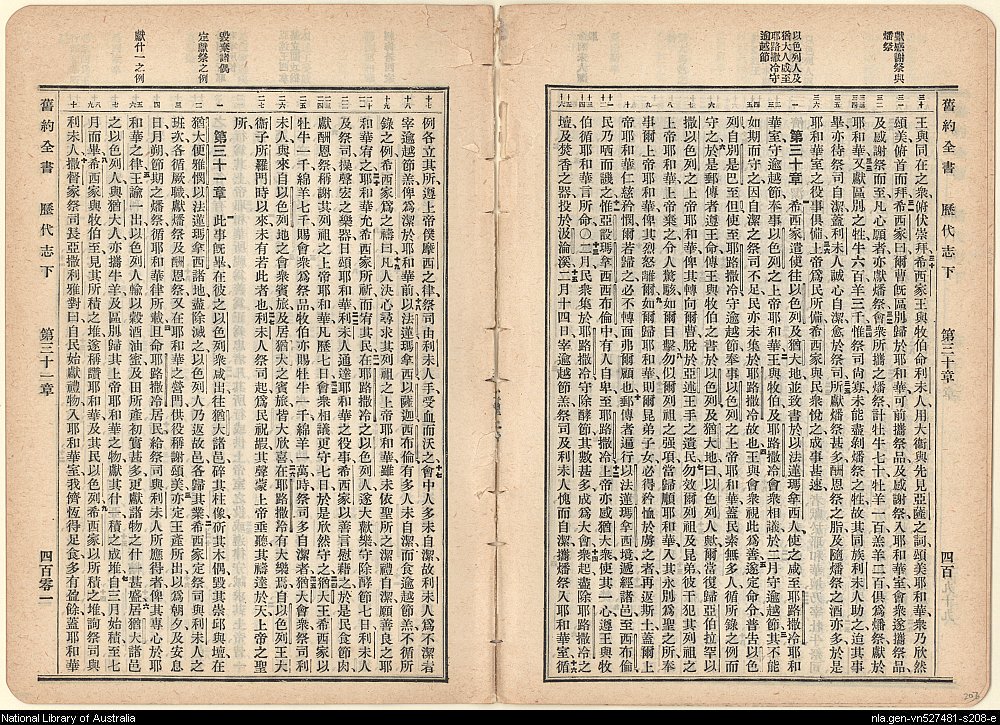 獻感謝祭與
燔祭
以色列人及
猶大人咸至
耶路撒冷守
逾越節
舊約全書 歷代志下 第三十章 四百
王與同在之衆俯伏崇拜希西家王與牧伯命利未人用大衛與先見亞薩之詞頌美耶和華衆乃欣然
頌美俯首而拜希西家曰爾曹旣區別歸於耶和華可前攜祭品及感謝祭入耶和華室會衆遂攜祭品
及感謝祭而至凡心願者亦獻燔祭會衆所攜之燔祭計牡牛七十牡羊一百羔羊二百俱爲燔祭獻於
耶和華又獻區別之牲牛六百羊三千惟祭司尙寡未能盡剝燔祭之牲故其同族利未人助之迨其事
畢亦待祭司自潔蓋利未人誠心自潔愈於祭司
耶和華室之役事俱備上帝爲民所備希西家與民衆悅之成事甚速
第三十章 希西家遣使往以色列及猶大地並致書於以法蓮瑪拿西人使之咸至耶路撒冷耶和
華室守逾越節奉事以色列之上帝耶和華王與牧伯及耶路撒冷會衆相議於二月守逾越節其不能
如期而守之因自潔之祭司不足民亦未集於耶路撒冷故也王與會衆視此爲善遂定命令普告以色
列自別是巴至但使至耶路撒冷守逾越節奉事以色列之上帝耶和華蓋民素無多人循所錄之例而
守之於是郵傳者遵王命傳王與牧伯之書於以色列及猶大地曰以色列人歟爾當復歸亞伯拉罕以
撒以色列之上帝耶和華俾其轉向爾曹脫於亞述王手之遺民勿效爾列祖及昆弟彼干犯其列祖之
上帝耶和華上帝棄之令人驚駭如爾目擊勿似爾列祖之強項當歸順耶和華入其永別爲聖之所奉
事爾上帝耶和華俾其烈怒離爾如爾歸於耶和華則爾昆弟子女必得矜恤於虜之者再返斯土蓋爾上
帝耶和華仁慈矜憫爾若歸之必不轉面弗爾顧也郵傳者遍行以法蓮瑪拿西境遞經諸邑至西布倫
民乃哂而譏之惟亞設瑪拿西西布倫中有人自卑至耶路撒冷上帝亦感猶大衆使其一心遵王與牧
伯循耶和華言所命〇二月民衆集於耶路撒冷守除酵節其數甚多成爲大會衆起盡除耶路撒冷之
壇及焚香之器投於汲淪溪二月十四日宰逾越節羔祭司及利未人愧而自潔攜燔祭入耶和華室循
例各立其所遵上帝僕摩西之律祭司由利未人手受血而沃之會中人多未自潔故利未人爲不潔者
宰逾越節羔俾爲潔於耶和華前以法蓮瑪拿西以薩迦西布倫有多人未自潔而食逾越節羔不循所
錄之例希西家爲之禱曰凡人決心尋求其列祖之上帝耶和華雖未依聖所之潔自潔願善良之耶
和華宥之耶和華允希西家所祈而宥其民在耶路撒冷之以色列人遂大歡樂守除酵節七日利未人
及祭司操聲宏之樂器日頌耶和華利未人通達耶和華之役事希西家以善言慰藉之於是民食節肉
獻酬恩祭稱謝其列祖之上帝耶和華凡歷七日會衆相議更守七日於是欣然守之猶大王希西家以
牡牛一千綿羊七千賜會衆爲祭品牧伯亦賜牡牛一千綿羊一萬時祭司多自潔者猶大會衆祭司利
未人與來自以色列地之會衆賓旅及居猶大之賓旅皆大欣喜在耶路撒冷有大樂焉自以色列王大
衛子所羅門時以來未有若此者也利未人祭司起爲民祝嘏其聲蒙上帝垂聽其禱達於天上帝之聖
所
第三十一章 此事旣畢在彼之以色列衆咸出往猶大諸邑碎其柱像斫其木偶毀其崇邱與壇在
猶大便雅憫以法蓮瑪拿西諸地盡除滅之以色列人乃返故邑各歸其業希西家定祭司與利未人之
班次各循厥職獻燔祭及酬恩祭又在耶和華之營門供役稱謝頌美亦定王產所出以爲朝夕及安息
日月朔節期之燔祭循耶和華律所載且命耶路撒冷居民給祭司與利未人所應得者俾其專心於耶
和華之律王諭一出以色列人輸以穀酒油蜜及田所產初實甚多更獻諸物之什一甚盛居猶大諸邑
之以色列人與猶大人亦攜牛羊及區別歸其上帝耶和華之物獻其什一積之成堆自三月始積至七
月而畢希西家與牧伯至見其所積之堆遂稱讚耶和華及其民以色列希西家以所積之堆詢祭司與
利未人撒督家祭司長亞撒利雅對曰自民始獻禮物入耶和華室我儕恆得足食多有盈餘蓋耶和華
毀棄諸偶
定獻祭之例
獻什一之例
舊約全書 歷代志下 第三十一章 四百零一
203
National Library of Australia
nla.gen-vn527481-s208-e